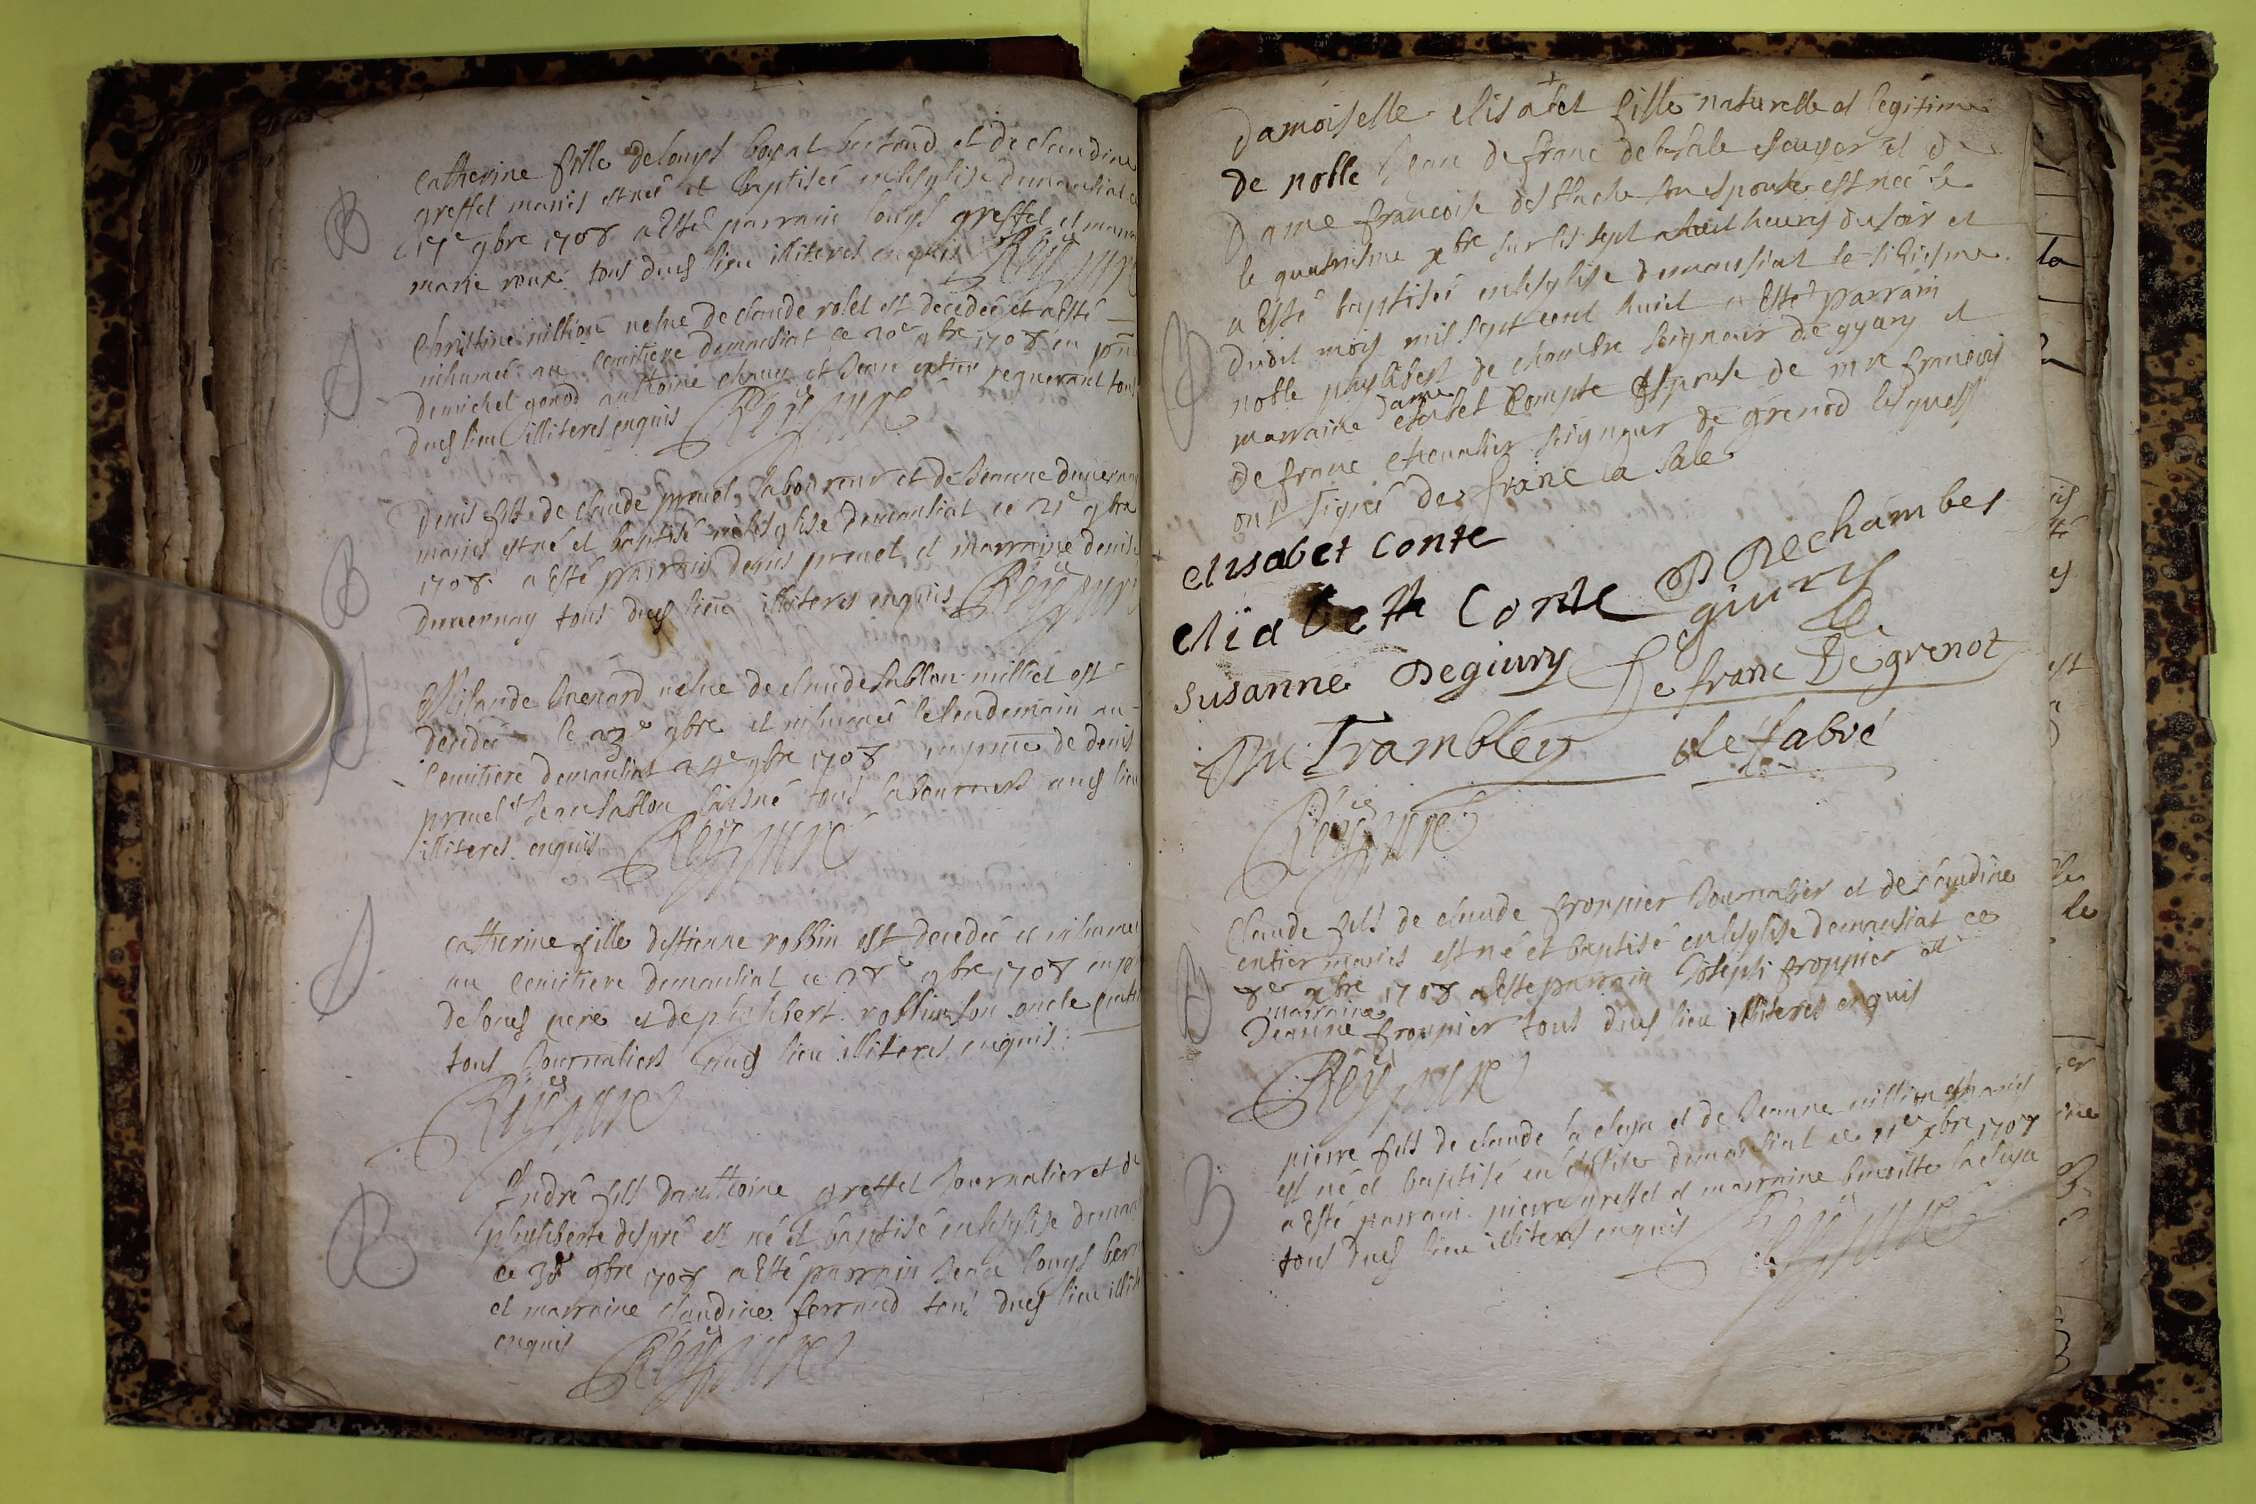 B
Catherine fille de louys boyat et de claudine
greffet mariés est née et baptisée en lesglise demansiat ce
17e 9bre 1708 a Esté parrain louys greffet et mara
marie roux tous dud lieu illiteres enquis Reÿ curé
Christine million vefve de claude rolet est decedée et a Esté
inhumée au cemitiere demansiat ce 20e 9bre 1708 en pnce
de michel gonod anthoine chanu et Jean entier requerant tous
dud lieu illiteres enquis Reÿ curé
B
denis fils de claude preuel laboureur et de Jeanne duuernay
mariés est né et baptisé en lesglise demansiat ce 21e 9bre
1708 a Esté parrain denis preuel et marraine denise
duuernay tous dud lieu illiteres enquis Reÿ curé
vefve de claude Sablon milliet est
decedée le 23e 9bre et inhumée le lendemain au
Cemitiere demansiat 24e 9bre 1708 en pnce de denis
preuel et Jean Sablon laisné tous laboureurs aud lieu
illiteres enquis Reÿ curé
Catherine fille destienne robbin est decedée et inhumée
au Cemitiere demansiat ce 28e 9bre 1708 en pnce
de sond pere et de philibert robbin son oncle
tous Journaliers aud lieu illiteres enquis
Reÿ curé
B
André fils danthoine greffet Journalier et de
phyliberte despré est né et baptisé en lesglise demansiat
ce 30 9bre 1708 a Esté parrain Jean louys
et marraine claudine ferrand tous dud lieu illiteres
enquis Reÿ curé
B
Damoiselle elisabet fille naturelle et legitime
de noble Jean de franc de la Sale escuyer et de
Dame francoise son espouse est née le
le quatriesme xbre sur les sept a huit heures du soir et
a Esté baptisée en lesglise demansiat le sixiesme
dudit mois mil sept cent huict a Esté parrain
noble phylibert de chambre seigneur de gyury et
marraine Dame elisabet Compte Espouse de mre francois
de franc chevalier seigneur de grenod lesquels
ont signé de franc la Sale
elisabet Conte
P Dechambes
giury
eliabeth Conte
Susanne Degiury
De franc De grenot
Du Trambley
de fabvé
Reÿ curé
B
Claude fils de claude froppier Journalier et de claudine
entier mariés est né et baptisé en lesglise demansiat ce
8e xbre 1708 a Esté parrain Joseph froppier et
marraine
Jeanne froppier tous dud lieu illiteres enquis
Reÿ curé
B
pierre fils de claude la cluza et de Jeanne million mariés
est né et baptisé en lesglise demansiat ce 11e xbre 1708
a Esté parrain pierre greffet et marraine benoitte lacluza
tous dud lieu illiteres enquis Reÿ curé